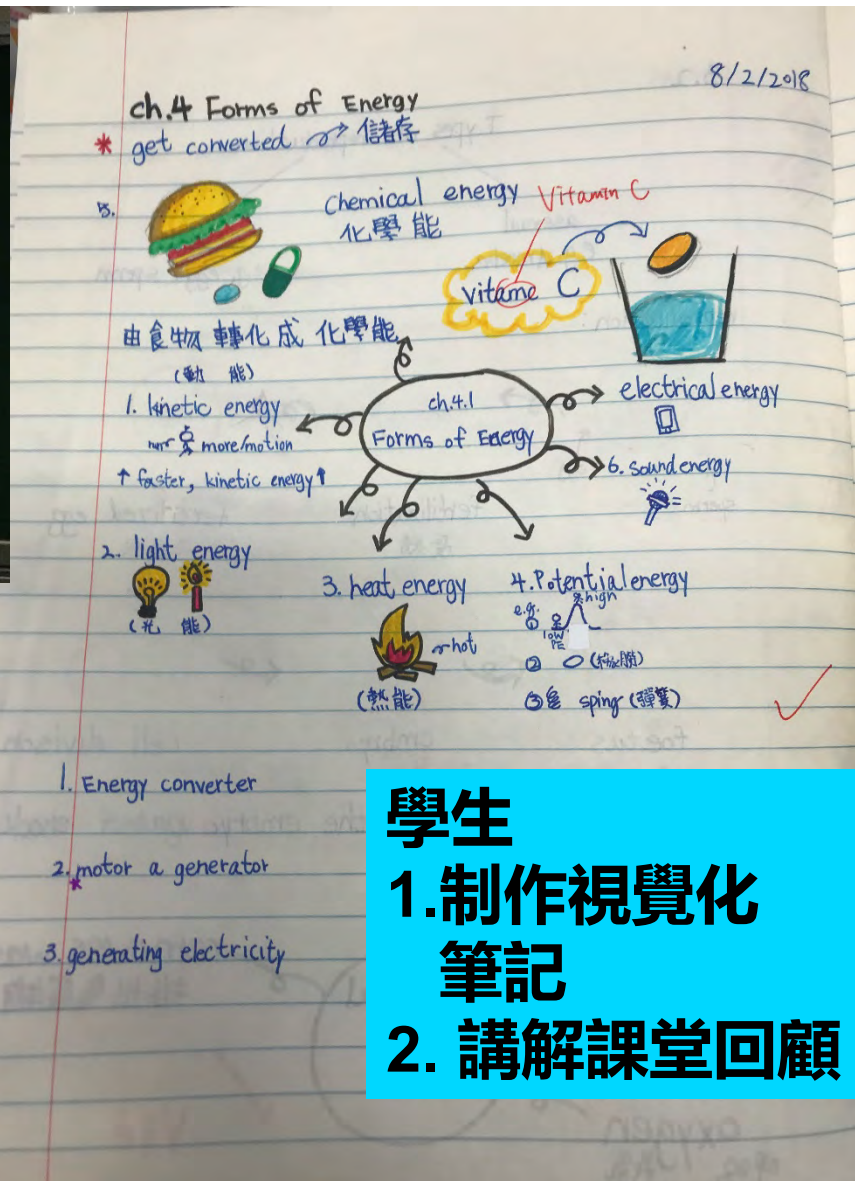 8/2/2018
ch.4 Forms of Energy
* get converted 儲存
5.
chemical energy Vitamin C
化學能
vitame C
由食物轉化成化學能
(動能)
1. kinetic energy
more/motion
↑ faster, kinetic energy ↑
ch.4.1
Forms of Energy
electrical energy
6. sound energy
2. light energy
(光能)
3. heat energy
hot
(熱能)
4. Potential energy
high
e.g.
①
low
PE
②
③ sping (彈簧)
1. Energy converter
2. motor a generator
*
3. generating electricity
學生
1.制作視覺化
筆記
2. 講解課堂回顧